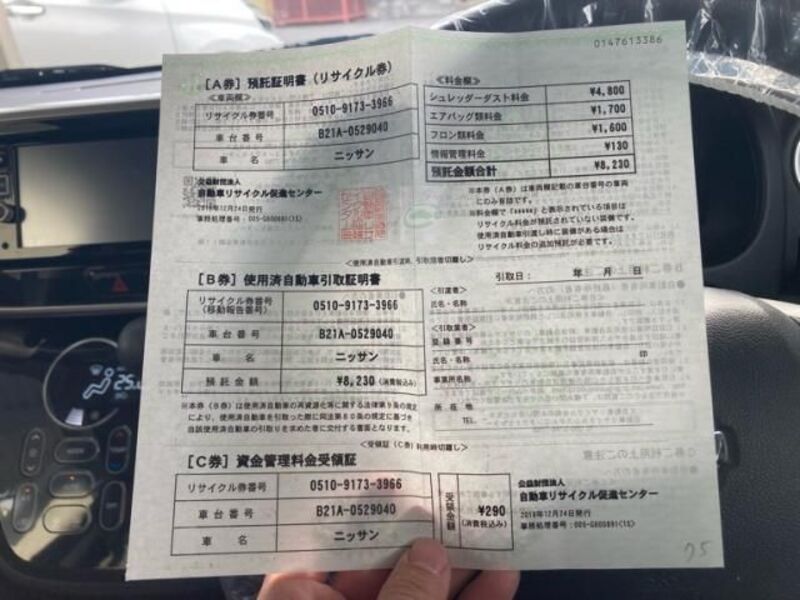 0147613386
[A券] 預託証明書 (リサイクル券)
≪車両欄≫
リサイクル券番号 0510-9173-3966
車台番号 B21A-0529040
車名 ニッサン
≪料金欄≫
シュレッダーダスト料金 ¥4,800
エアバッグ類料金 ¥1,700
フロン類料金 ¥1,600
情報管理料金 ¥130
預託金額合計 ¥8,230
公益財団法人
自動車リサイクル促進センター
2018年12月24日発行
※本券（A券）は車両欄記載の車台番号の車両
にのみ有効です。
※料金欄で「*****」と表示されている項目は
リサイクル料金が預託されていない装備です。
使用済自動車引渡し時に装備がある場合は
リサイクル料金の追加預託が必要です。
[B券] 使用済自動車引取証明書
引取日： 年 月 日
リサイクル券番号
(移動報告番号)
0510-9173-3966
車台番号 B21A-0529040
車名 ニッサン
預託金額 ¥8,230 (消費税込み)
≪引渡者≫
氏名・名称
≪引取業者≫
登録番号
氏名・名称 印
事業所名称
所在地
TEL
※本券（B券）は使用済自動車の再資源化等に関する法律第９条の規定
により、使用済自動車を引取った際に同法第８０条の規定に基づき
当該使用済自動車の引取りを求めた者に交付する書面となります。
[C券] 資金管理料金受領証
リサイクル券番号 0510-9173-3966
車台番号 B21A-0529040
車名 ニッサン
受領金額
¥290
(消費税込み)
公益財団法人
自動車リサイクル促進センター
2018年12月24日発行